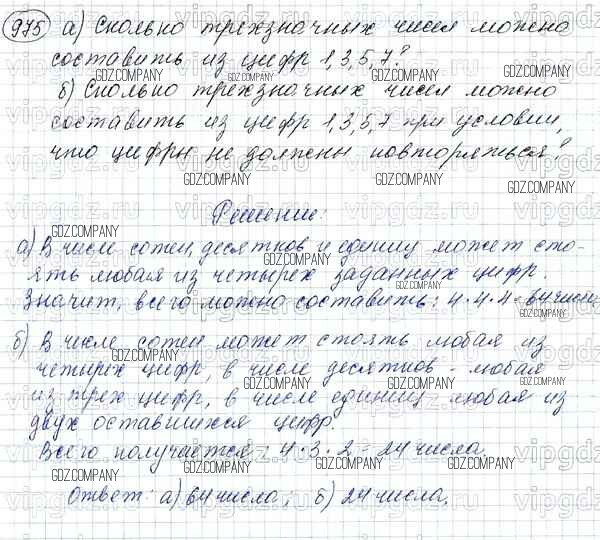 975 а) Сколько трехзначных чисел можно
составить из цифр 1,3,5,7?
б) Сколько трехзначных чисел можно
составить из цифр 1,3,5,7 при условии,
что цифры не должны повторяться?
Решение:
а) В числе сотен, десятков и единиц может сто-
ять любая из четырех заданных цифр.
Значит, всего можно составить: 4·4·4=64 числа
б) В числе сотен может стоять любая из
четырех цифр, в числе десятков - любая
из трех цифр, в числе единиц - любая из
двух оставшихся цифр.
Всего получается: 4·3·2=24 числа.
Ответ: а) 64 числа; б) 24 числа.